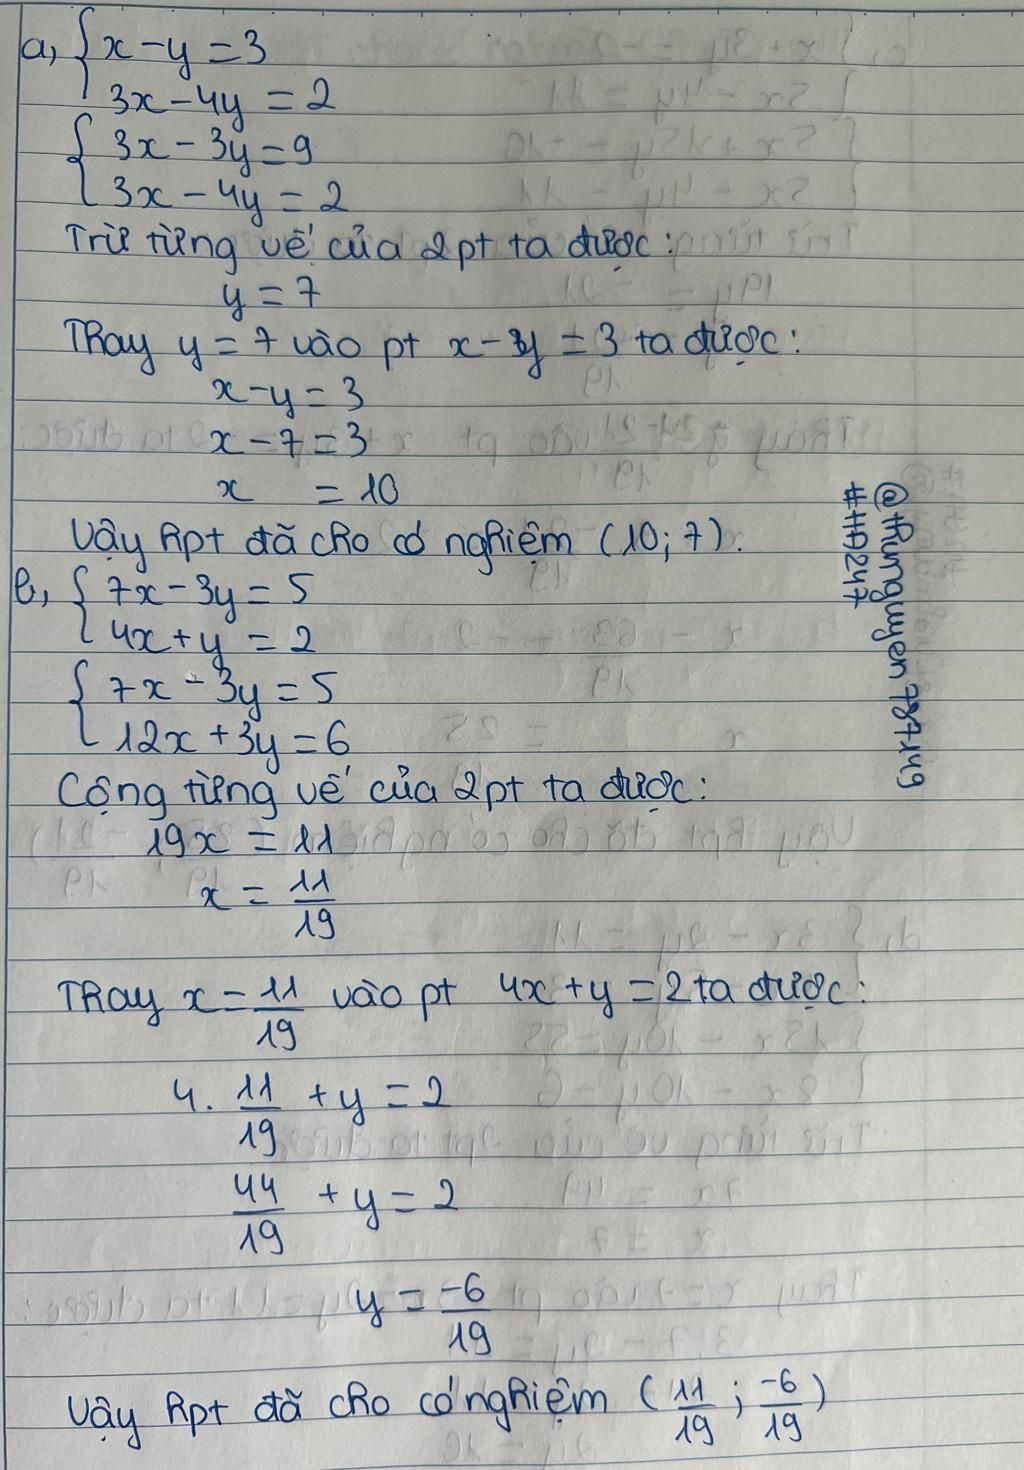 a, { x - y = 3
3x - 4y = 2
{ 3x - 3y = 9
3x - 4y = 2
Trừ từng vế của 2pt ta được:
y = 7
Thay y = 7 vào pt x - y = 3 ta được:
x - y = 3
x - 7 = 3
x = 10
Vậy hpt đã cho có nghiệm (10; 7).
b, { 7x - 3y = 5
4x + y = 2
{ 7x - 3y = 5
12x + 3y = 6
Cộng từng vế của 2pt ta được:
19x = 11
x = 11/19
Thay x = 11/19 vào pt 4x + y = 2 ta được:
4. 11/19 + y = 2
44/19 + y = 2
y = -6/19
Vậy hpt đã cho có nghiệm (11/19; -6/19)
#HA247